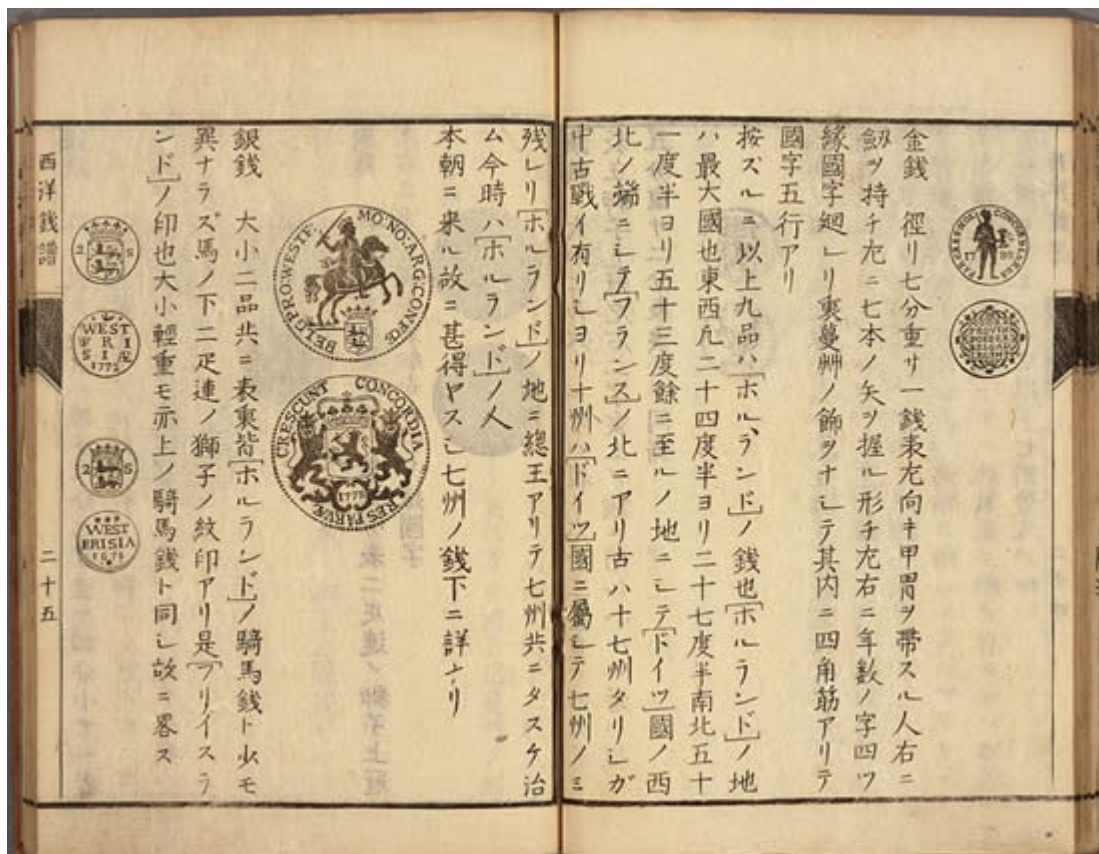 金錢 徑リ七分重サ一錢表左向キ甲冑ヲ帶スル人右ニ
劔ヲ持チ左ニ七本ノ矢ヲ握ル形チ左右ニ年数ノ字四ツ
縁國字廻レリ裏蔓艸ノ飾ヲナシテ其内ニ四角筋アリテ
國字五行アリ
按スルニ以上九品ハホルランドノ錢也ホルランドノ地
ハ最大國也東西凡二十四度半ヨリ二十七度半南北五十
一度半ヨリ五十三度餘ニ至ルノ地ニシテドイツ國ノ西
北ノ端ニシテフランスノ北ニアリ古ハ十七州タリシガ
中古戰イ有リシヨリ十州ハドイツ國ニ屬シテ七州ノミ
残レリホルランドノ地ニ總王アリテ七州共ニタスケ治
ム今時ハホルランドノ人
本朝ニ来ル故ニ甚得ヤスシ七州ノ錢下ニ詳ナリ
MO:NO:ARG:CONFŒ
BELG:PRO:WESTF.
CONCORDIA
RES PARVÆ
CRESCUNT
1775
銀錢 大小二品共ニ表裏皆ホルランドノ騎馬錢ト少モ
異ナラズ馬ノ下二疋連ノ獅子ノ紋印アリ是フリイスラ
ンドノ印也大小輕重モ亦上ノ騎馬錢ト同シ故ニ畧ス
2 S
WEST
F RI
S IÆ
1772
2 S
WEST
FRISIA
1675
西洋錢譜
二十五